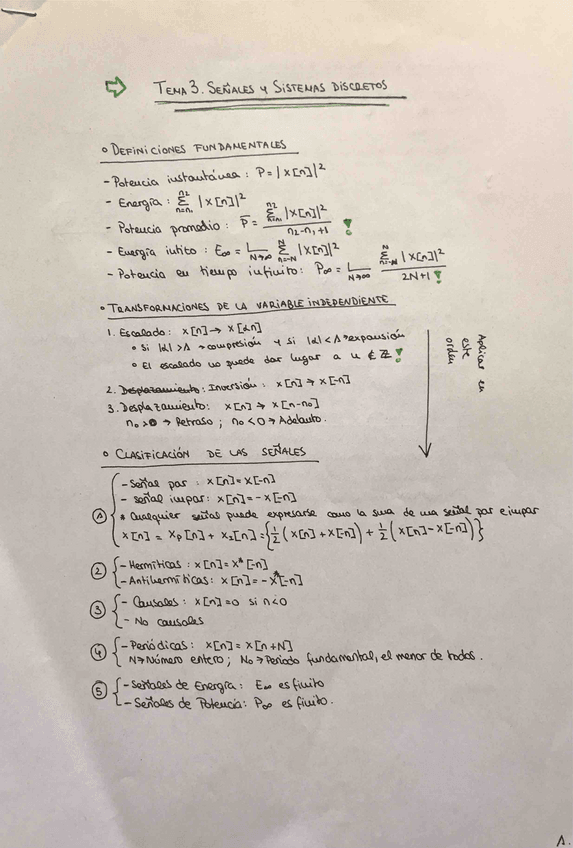 TEMA 3. SEÑALES Y SISTEMAS DISCRETOS
o DEFINICIONES FUNDAMENTALES
- Potencia instantánea : P = |x[n]|²
- Energía : Σ_{n=n₁}^{n₂} |x[n]|²
- Potencia promedio : P̄ = Σ_{n=n₁}^{n₂} |x[n]|² / (n₂-n₁+1) !
- Energía infito : E∞ = L_{N→∞} Σ_{n=-N}^{N} |x[n]|²
- Potencia en tiempo infinito : P∞ = L_{N→∞} Σ_{n=-N}^{N} |x[n]|² / (2N+1) !
o TRANSFORMACIONES DE LA VARIABLE INDEPENDIENTE
1. Escalado : x[n] → x[αn]
o Si |α| > 1 → compresión y si |α| < 1 → expansión
o El escalado no puede dar lugar a n ∉ ℤ !
2. Desplazamiento: Inversión : x[n] → x[-n]
3. Desplazamiento: x[n] → x[n-n₀]
n₀ > 0 → Retraso ; n₀ < 0 → Adelanto.
Aplicar en
este
orden
o CLASIFICACIÓN DE LAS SEÑALES
① - Señal par : x[n] = x[-n]
- señal impar : x[n] = -x[-n]
* Cualquier señal puede expresarse como la suma de una señal par e impar
x[n] = x_P[n] + x_I[n] = {½ (x[n] + x[-n]) + ½ (x[n] - x[-n])}
② - Hermíticas : x[n] = x*[-n]
- Antihermíticas : x[n] = -x*[-n]
③ - Causales : x[n] = 0 si n < 0
- No causales
④ - Periódicas : x[n] = x[n+N]
N → Número entero ; N₀ → Periodo fundamental, el menor de todos.
⑤ - Señales de Energía : E∞ es finito
- Señales de Potencia : P∞ es finito.
1.